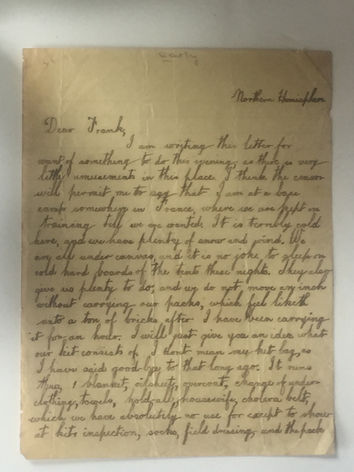 Northern Hemisphere
Dear Frank,
I am writing this letter for
want of something to do this evening, as there is very
little amusements in this place. I think the censor
will permit me to say that I am at a base
camp somewhere in France, where we are kept in
training till we are wanted. It is terribly cold
here, and we have plenty of snow and wind. We
are all under canvas, and it is no joke to sleep on
cold hard boards of the tents these nights. They also
give us plenty to do, and we do not move an inch
without carrying our packs, which feel like
unto a ton of bricks after I have been carrying
it for an hour. I will just give you an idea what
our kit consists of. I dont mean my kit bag, as
I have said good-bye to that long ago. It runs
thus, 1 blanket, oilsheet, overcoat, change of under-
clothing, towels, hold-all, housewife, cholera belt,
which we have absolutely no use for except to show
at kits inspection, socks, field dressing, and the pack